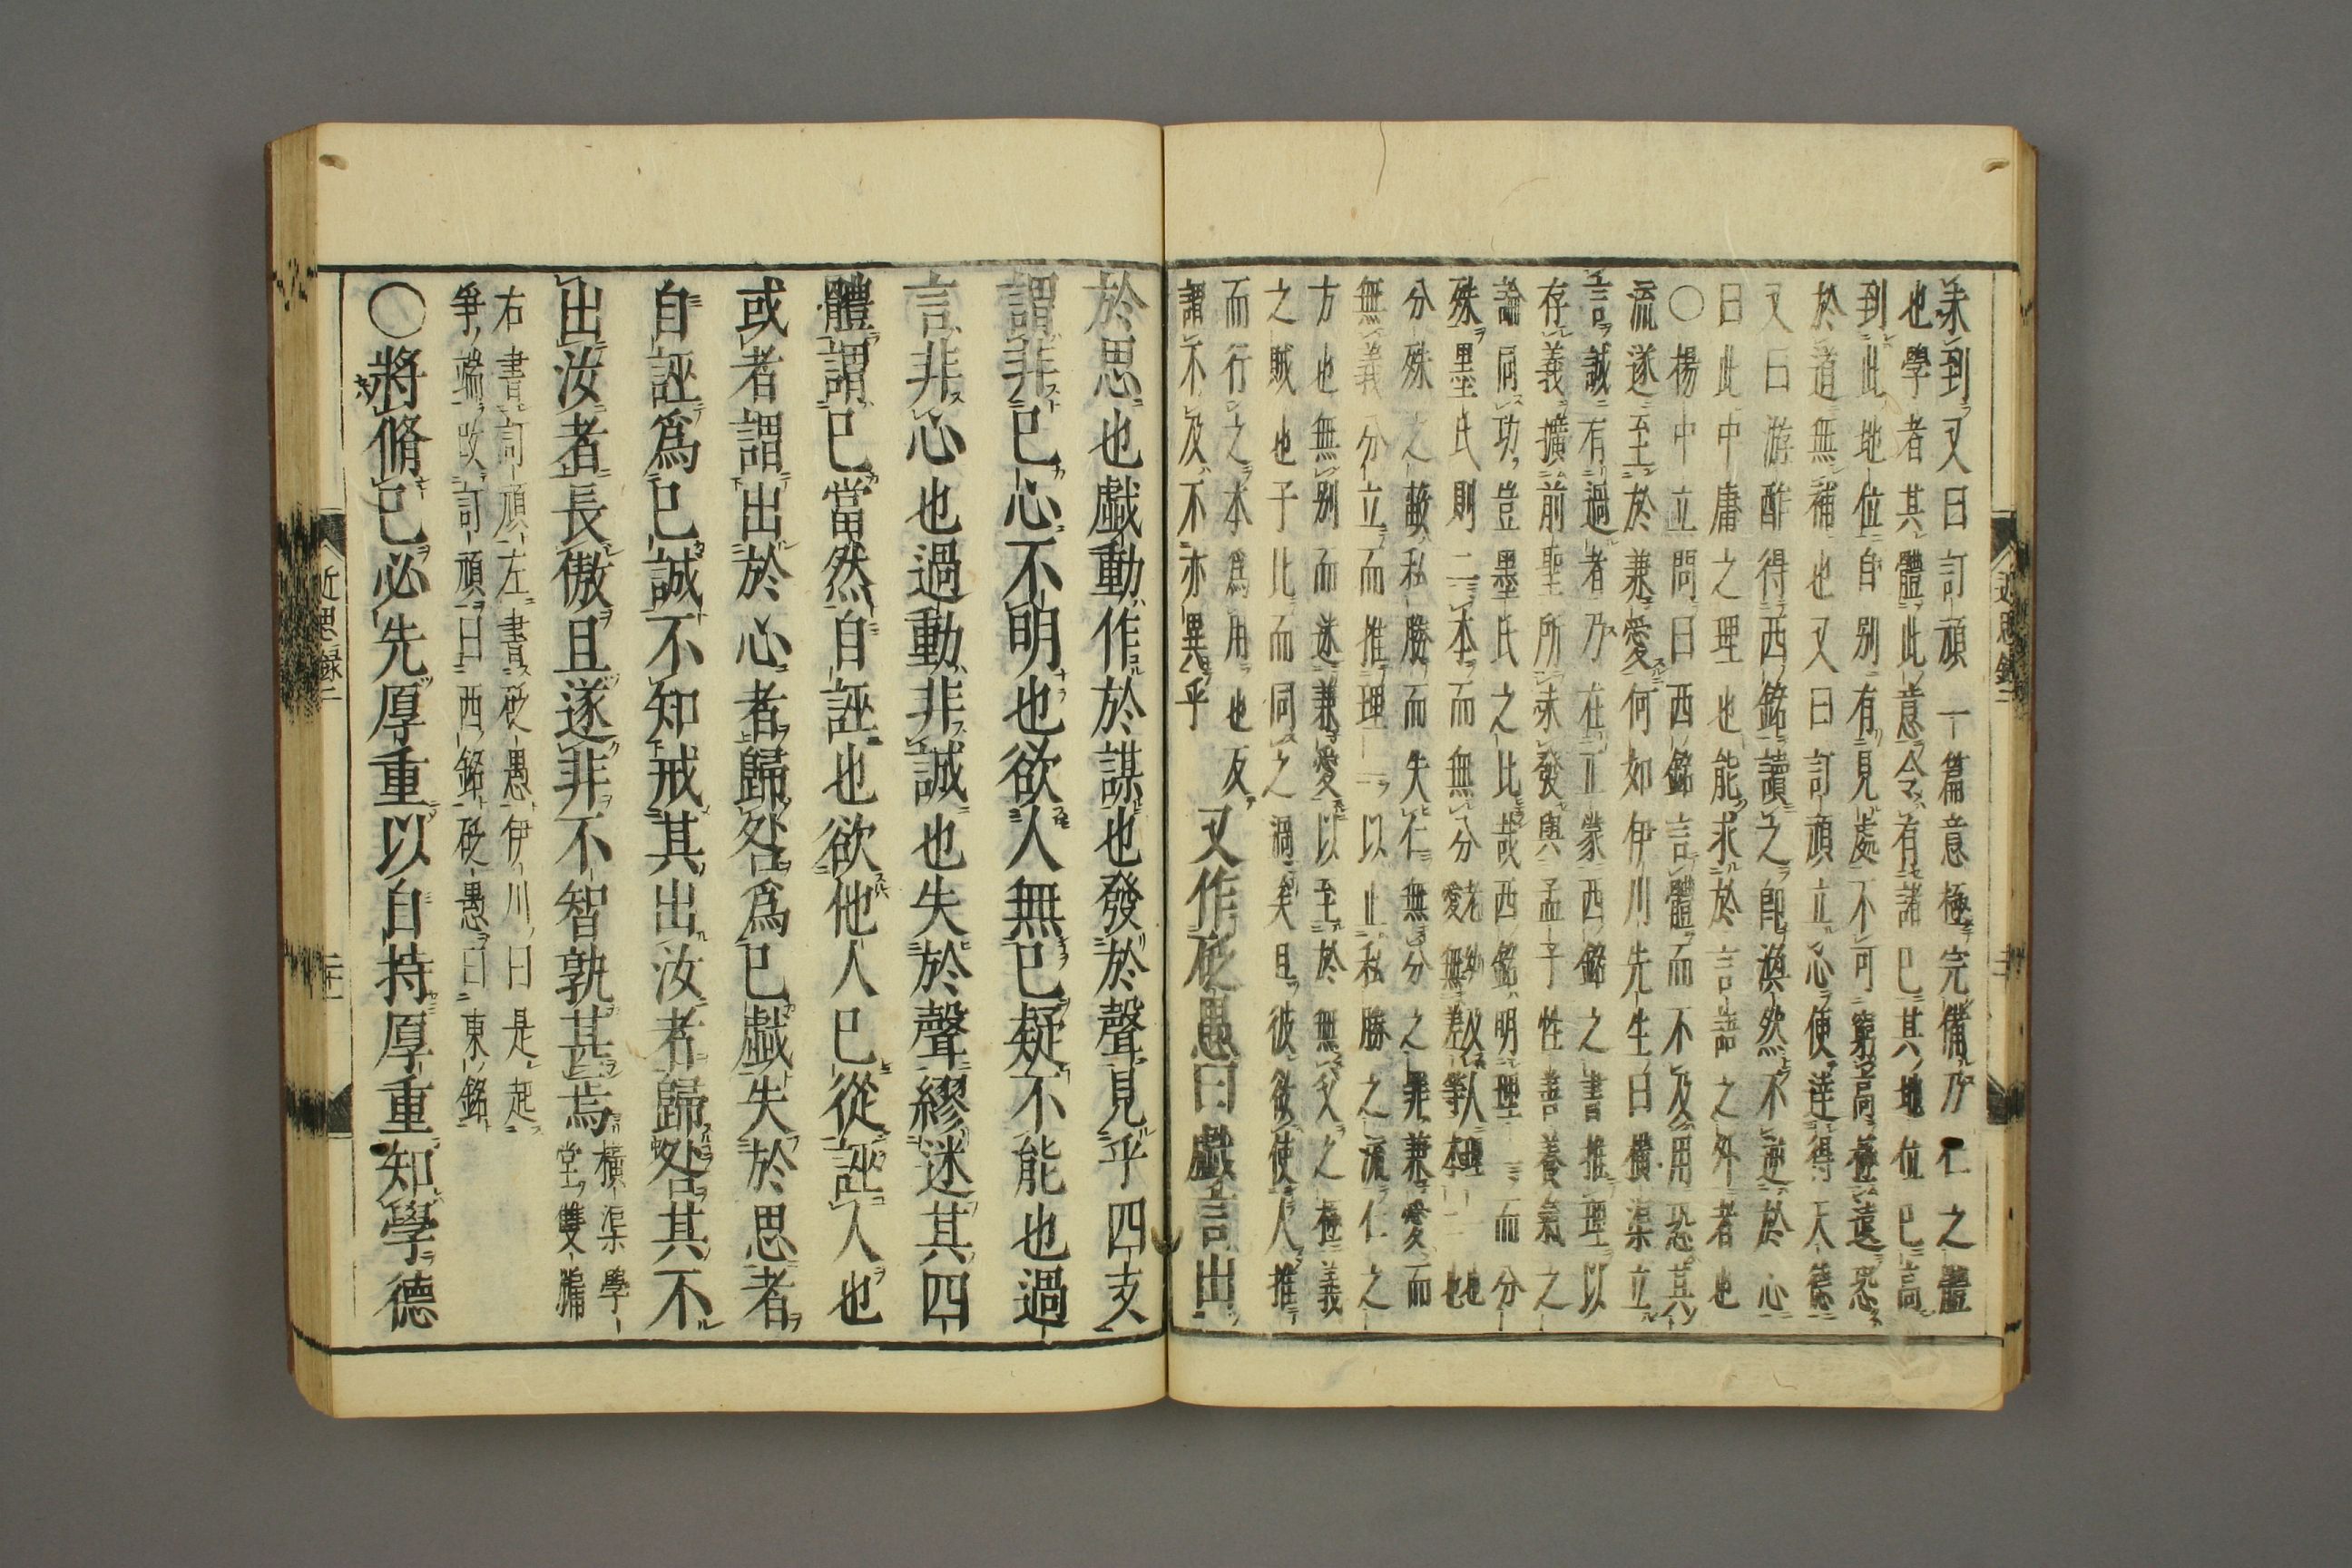 未到又曰訂頑一篇意極完備乃仁之體
也學者其體此意令有諸已其地位已高
到此地位自別有見處不可窮高極遠恐
於道無補也又曰訂頑立心使達得天德
又曰游酢得西銘讀之卽渙然不逆於心
曰此中庸之理也能求於言語之外者也
○楊中立問曰西銘言體而不及用恐其
流遂至於兼愛何如伊川先生曰橫渠立
言誠有過者乃在正蒙西銘之書推理以
存義擴前聖所未發與孟子性善養氣之
論同功豈墨氏之比哉西銘明理一而分
殊墨氏則二本而無分老幼及人理一也
愛無差等本二也
分殊之蔽私勝而失仁無分之罪兼愛而
無義分立而推理一以止私勝之流仁之
方也無別而迷兼愛以至於無父之極義
之賊也子比而同之過矣且彼欲使人推
而行之本爲用也反
謂不及不亦異乎
又作砭愚曰戲言出
於思也戲動作於謀也發於聲見乎四支
謂非已心不明也欲人無已疑不能也過
言非心也過動非誠也失於聲繆迷其四
體謂已當然自誣也欲他人已從誣人也
或者謂出於心者歸咎爲已戲失於思者
自誣爲已誠不知戒其出汝者歸咎其不
出汝者長傲且遂非不智孰甚焉橫渠學
堂雙牖
右書訂頑左書砭愚伊川曰是起
爭端改訂頑曰西銘砭愚曰東銘
○將脩已必先厚重以自持厚重知學德
近思錄二